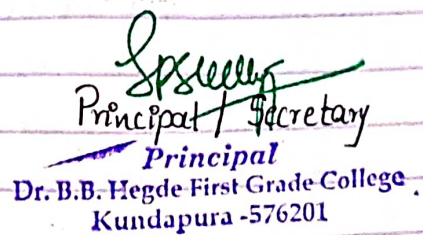 Principal / Secretary
Principal
Dr. B.B. Hegde First Grade College
Kundapura -576201